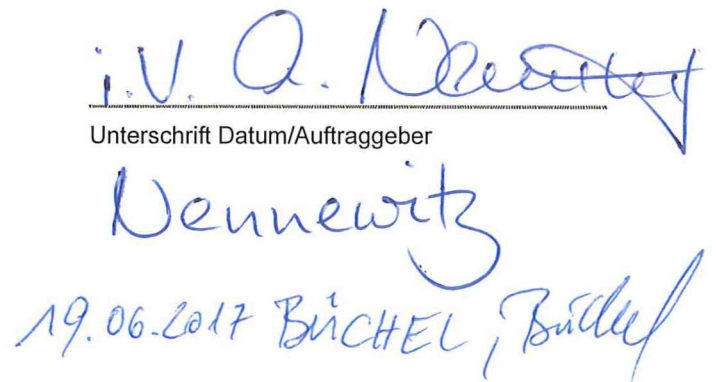 i.V. A. Nennewitz
Unterschrift Datum/Auftraggeber
Nennewitz
19.06.2017 BÜCHEL, Büchel